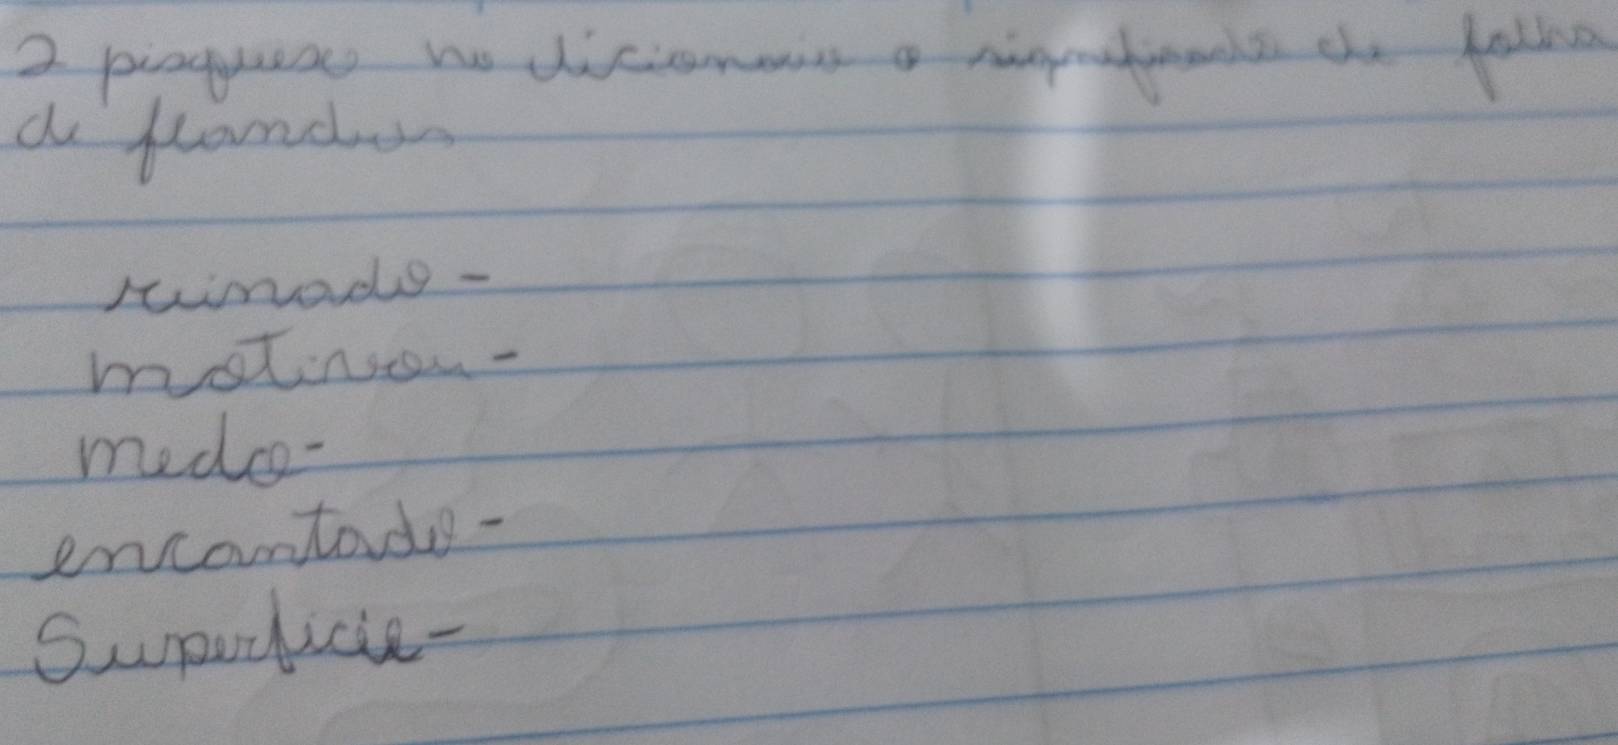 2 pisquese no dicionario o significado de folha
de flandres
reinado -
motivou -
medo -
encantado -
Superficie -